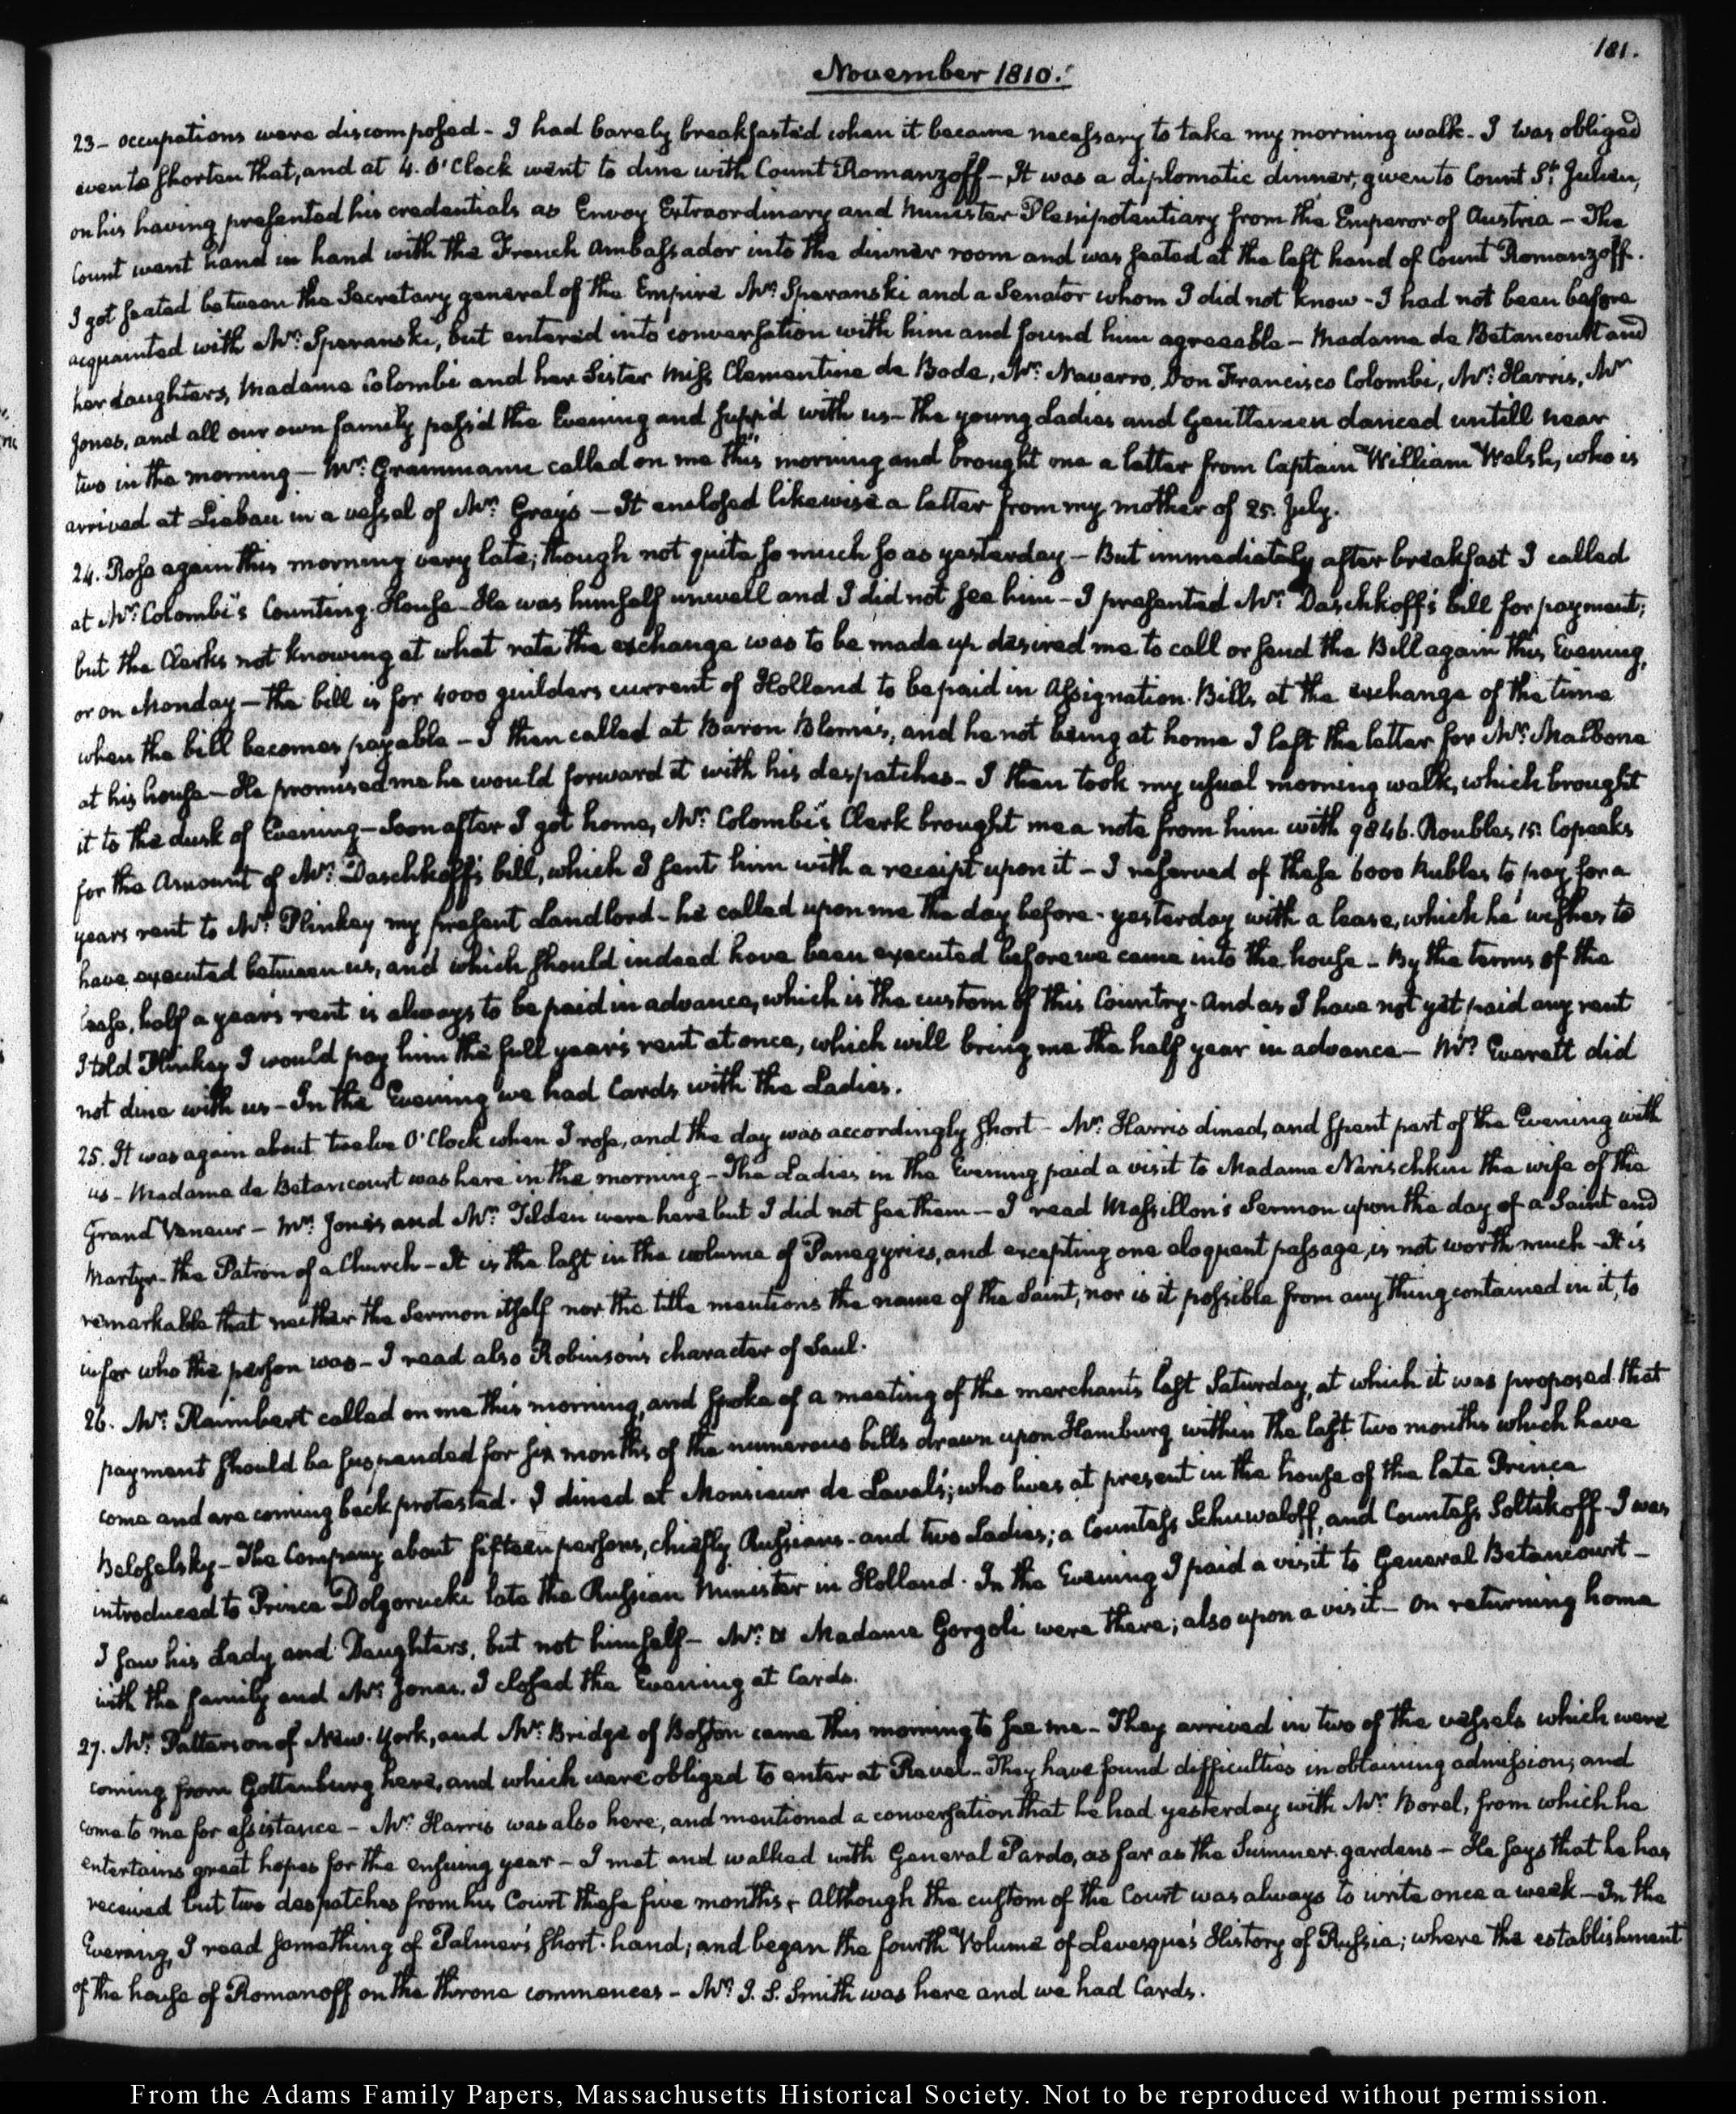 181.
November 1810.
23- occupations were discomposed - I had barely breakfasted when it became necessary to take my morning walk - I was obliged
even to shorten that, and at 4. O'Clock went to dine with Count Romanzoff - It was a diplomatic dinner, given to Count St. Julien,
on his having presented his credentials as Envoy Extraordinary and Minister Plenipotentiary from the Emperor of Austria - The
Count went hand in hand with the French Ambassador into the dinner room and was seated at the left hand of Count Romanzoff.
I got seated between the Secretary general of the Empire Mr. Speranski and a Senator whom I did not know - I had not been before
acquainted with Mr. Speranski, but entered into conversation with him and found him agreeable - Madame de Betancourt and
her daughters, Madame Colombi and her Sister Miss Clementine de Bode, Mr. Navarro, Don Francisco Colombi, Mr. Harris, Mr
Jones, and all our own family pass'd the Evening and supp'd with us - the young Ladies and Gentlemen danced untill near
two in the morning - Mr. Grammann called on me this morning and brought me a letter from Captain William Welsh, who is
arrived at Liebau in a vessel of Mr. Gray's - It enclosed likewise a letter from my mother of 25. July.
24. Rose again this morning very late; though not quite so much so as yesterday - But immediately after breakfast I called
at Mr. Colombi's Counting-House - He was himself unwell and I did not see him - I presented Mr. Daschkoff's bill for payment;
but the Clerks not knowing at what rate the exchange was to be made up desired me to call or send the Bill again this Evening,
or on Monday - the bill is for 4000 guilders current of Holland to be paid in Assignation-Bills at the exchange of the time
when the bill becomes payable - I then called at Baron Blome's, and he not being at home I left the letter for Mr. Malbone
at his house - He promised me he would forward it with his despatches - I then took my usual morning walk, which brought
it to the dusk of Evening - Soon after I got home, Mr. Colombi's Clerk brought me a note from him with 9846. Roubles 15. Copeeks
for the Amount of Mr. Daschkoff's bill, which I sent him with a receipt upon it - I reserved of these 6000 Rubles to pay for a
years rent to Mr. Plinkey my present Landlord - he called upon me the day before-yesterday with a lease, which he wishes to
have executed between us, and which should indeed have been executed before we came into the house - By the terms of the
lease, half a year's rent is always to be paid in advance, which is the custom of this Country - And as I have not yet paid any rent
I told Plinkey I would pay him the full year's rent at once, which will bring me the half year in advance - Mr. Everett did
not dine with us - In the Evening we had Cards with the Ladies.
25. It was again about twelve O'Clock when I rose, and the day was accordingly short - Mr. Harris dined, and spent part of the Evening with
us - Madame de Betancourt was here in the morning - The Ladies in the Evening paid a visit to Madame Narischkin the wife of the
Grand Veneur - Mr. Jones and Mr. Tilden were here but I did not see them - I read Massillon's Sermon upon the day of a Saint and
Martyr - the Patron of a Church - It is the last in the volume of Panegyrics, and excepting one eloquent passage, is not worth much - It is
remarkable that neither the Sermon itself nor the title mentions the name of the Saint, nor is it possible from any thing contained in it, to
infer who the person was - I read also Robinson's character of Saul.
26. Mr. Raimbert called on me this morning, and spoke of a meeting of the merchants last Saturday, at which it was proposed that
payment should be suspended for six months of the numerous bills drawn upon Hamburg within the last two months which have
come and are coming back protested. I dined at Monsieur de Laval's; who lives at present in the house of the late Prince
Beloselsky - The Company about fifteen persons, chiefly Russians - and two Ladies; a Countess Schuwaloff, and Countess Soltikoff - I was
introduced to Prince Dolgorucki late the Russian Minister in Holland. In the Evening I paid a visit to General Betancourt -
I saw his Lady and Daughters, but not himself - Mr. & Madame Gorgoli were there; also upon a visit - On returning home
with the family and Mr. Jones, I closed the Evening at Cards.
27. Mr. Patterson of New-York, and Mr. Bridge of Boston came this morning to see me - They arrived in two of the vessels which were
coming from Gottenburg here, and which were obliged to enter at Revel - They have found difficulties in obtaining admission; and
come to me for assistance - Mr. Harris was also here, and mentioned a conversation that he had yesterday with Mr. Borel, from which he
entertains great hopes for the ensuing year - I met and walked with General Pardo, as far as the Summer-gardens - He says that he has
received but two despatches from his Court these five months - Although the custom of the Court was always to write once a week - In the
Evening, I read something of Palmer's short-hand; and began the fourth Volume of Levesque's History of Russia; where the establishment
of the house of Romanoff on the throne commences - Mr. J. S. Smith was here and we had Cards.
From the Adams Family Papers, Massachusetts Historical Society. Not to be reproduced without permission.